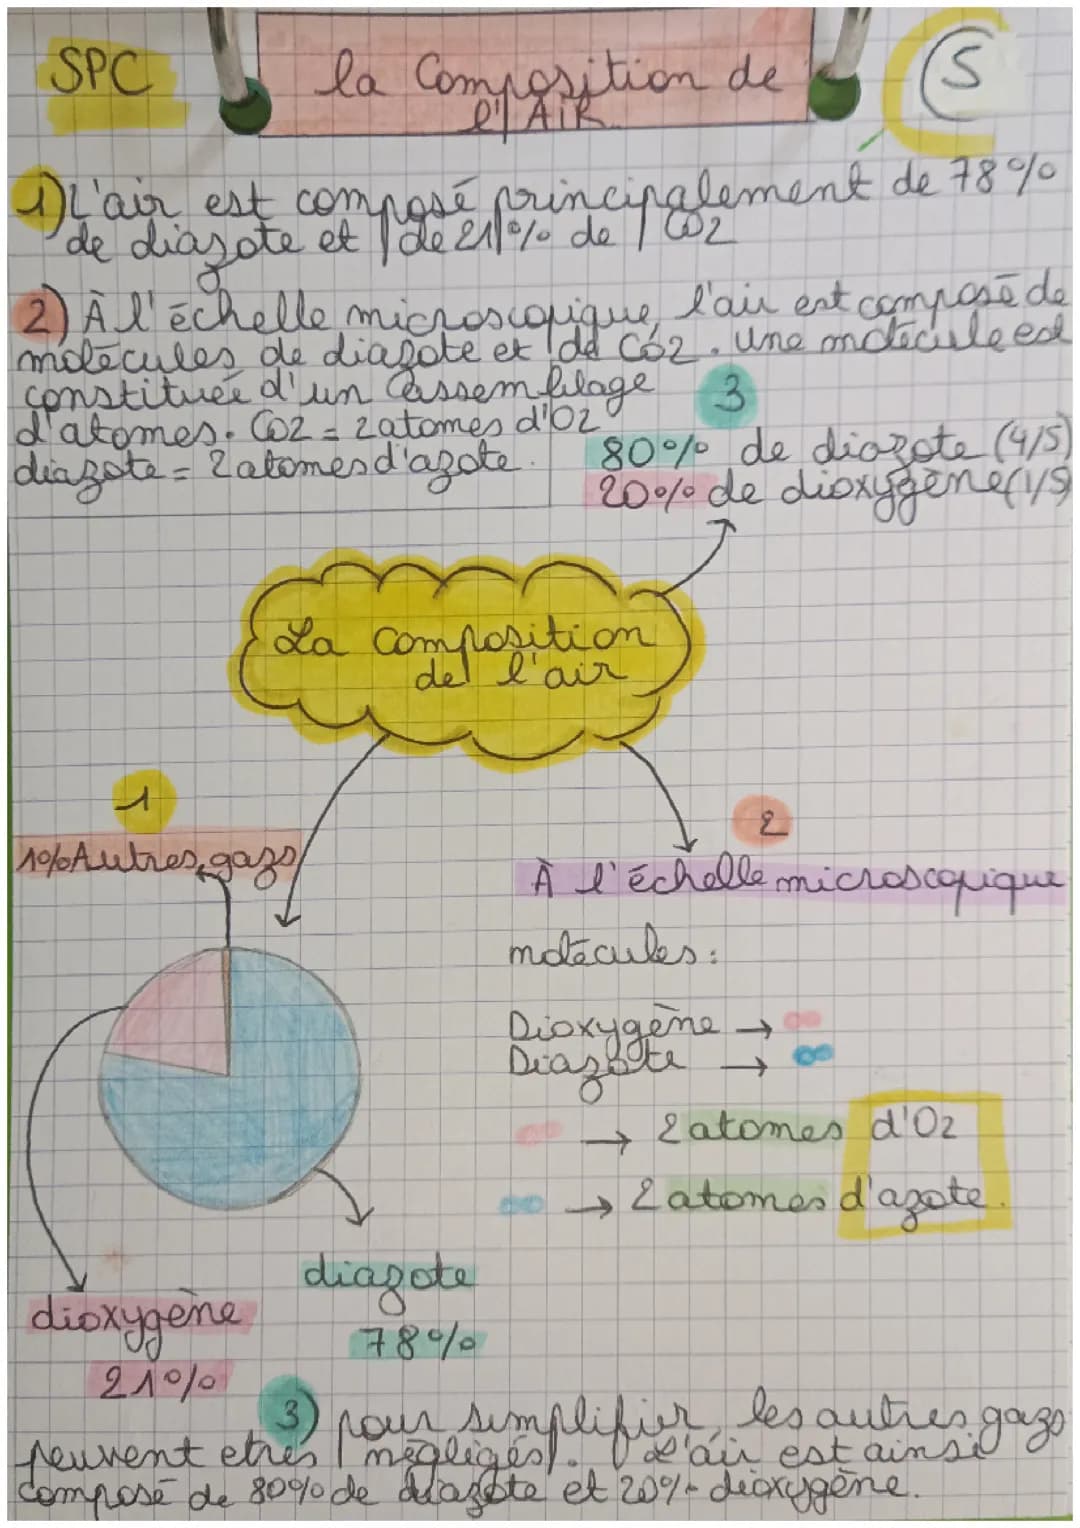 SPC
la Composition de
l'AiR
S
1) L'air est composé principalement de 78%
de diazote et de 21% de CO2
2) À l'échelle microscopique, l'air est composé de
molécules de diazote et de CO2. Une molécule est
constituée d'un assemblage
d'atomes. CO2 = 2 atomes d'O2
diazote = 2 atomes d'azote.
3
80% de diazote (4/5)
20% de dioxygène (1/5)
La composition
de l'air
1
1% Autres gazs
2
À l'échelle microscopique
molécules :
Dioxygène →
Diazote →
→ 2 atomes d'O2
→ 2 atomes d'azote.
diazote
78%
dioxygène
21%
3) pour simplifier, les autres gazs
peuvent etres négligés. L'air est ainsi
composé de 80% de diazote et 20% dioxygène.